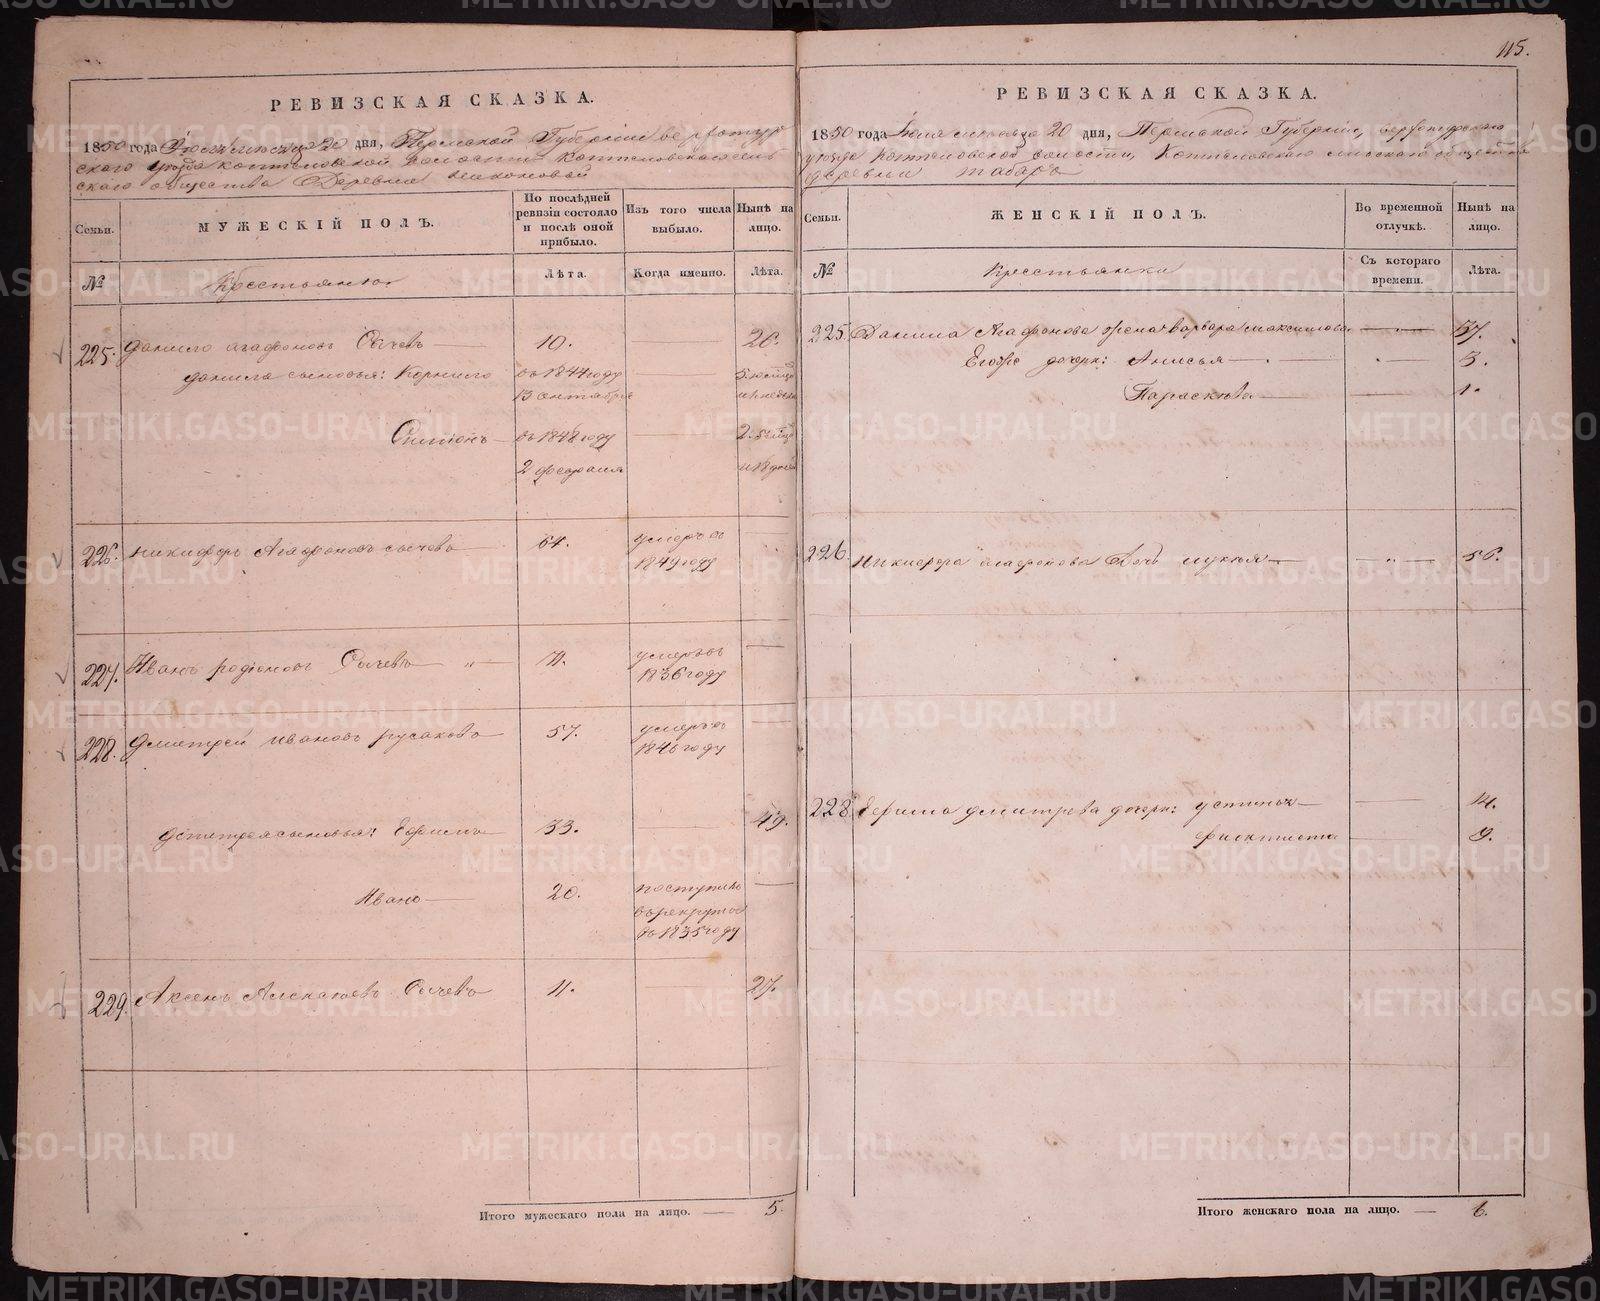 115.
РЕВИЗСКАЯ СКАЗКА.
1850 года Июня месяца 20 дня, Пермской Губернiи Верхотур
скаго уезда Коптеловской волости Коптеловскаго сель
скаго общества Деревни
Семьи.
МУЖЕСКІЙ ПОЛЪ.
По послѣдней ревизіи состояло и послѣ оной прибыло.
Изъ того числа выбыло.
Нынѣ на лицо.
№
Крестьяне
Лѣта.
Когда именно.
Лѣта.
225. Данило Агафоновъ Сычевъ 10. 26.
Данила сыновья: Корнило въ 1844 году
13 октября
въ 1848 году 2.
2 февраля
226. Никифоръ Агафоновъ Сычевъ 61. умеръ въ
1849 году
227. Иванъ Родіоновъ Сычевъ " 71. умеръ въ
1836 году
228. Дмитрей Ивановъ Русаковъ 57. умеръ въ
1846 году
Дмитрея сыновья: Ефимъ 33. 49.
Иванъ 20. поступилъ
въ рекруты
въ 1835 году
229. Аксенъ Алексеевъ Сычевъ 11. 27.
Итого мужескаго пола на лицо. 5.
РЕВИЗСКАЯ СКАЗКА.
1850 года Июня месяца 20 дня, Пермской Губернiи, Верхотурскаго
уезда Коптеловской волости, Коптеловскаго сельскаго общества
деревни Табары
Семьи.
ЖЕНСКІЙ ПОЛЪ.
Во временной отлучкѣ.
Нынѣ на лицо.
№
Крестьянки
Съ котораго времени.
Лѣта.
225. Данила Агафонова жена Варвара Максимова 37.
Егоже дочери: Анисья 3.
Параскева 1.
226. Никифора Агафонова дочь Лукия " 56.
228. Ефима Дмитрева дочери: Устинья 14.
Фиоктиста 9.
Итого женскаго пола на лицо. 6.
METRIKI.GASO-URAL.RU